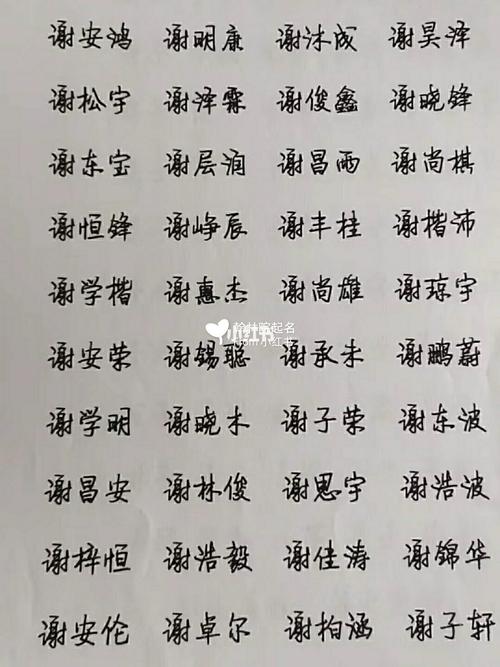 谢安鸿 谢明康 谢沐成 谢昊泽
谢松宇 谢泽霖 谢俊鑫 谢晓锋
谢东宝 谢层润 谢昌雨 谢尚棋
谢恒锋 谢峥辰 谢丰桂 谢楷沛
谢学楷 谢惠杰 谢尚雄 谢琼宇
小红书
起名
小红书
谢安荣 谢锡聪 谢承未 谢鹏蔚
谢学明 谢晓木 谢子荣 谢东波
谢昌安 谢林俊 谢思宇 谢浩波
谢梓恒 谢浩毅 谢佳涛 谢锦华
谢安伦 谢卓尔 谢柏涵 谢子轩